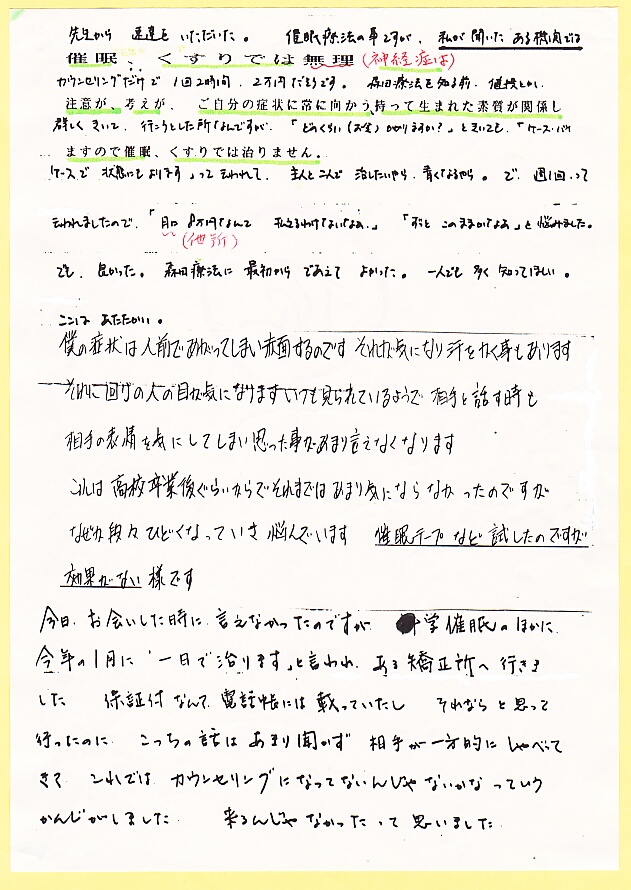 先生から 速達を いただいた。 催眠療法の事ですが、私が聞いた ある機関では
催眠、くすりでは無理(神経症は)
カウンセリングだけで 1回2時間、2万円だそうです。 森田療法を知る前、値段とか、
注意が、考えが、ご自分の症状に常に向かう、持って生まれた素質が関係し
詳しく きいて、行こうとした所なんですが、「どのくらい(お金)かかりますか?」ときいても、「ケース・バイ
ますので催眠、くすりでは治りません。
ケースで 状態にもよります」って言われて、主人と二人で 治したいやら、高くなるやら。 で、週1回って
言われましたので、「月に 8万円なんて 払えるわけないなあ、」 「ずっと このままかなあ」と悩みました。
(他所)
でも、良かった。 森田療法に 最初から であえて よかった。 一人でも 多く 知ってほしい。
ここは あたたかい。
僕の症状は人前であがってしまい赤面するのです それが気になり汗をかく事もあります
それに回りの人の目が気になります いつも見られているようで 相手と話す時も
相手の表情を気にしてしまい思った事があまり言えなくなります
これは高校卒業後ぐらいからでそれまではあまり気にならなかったのですが
なぜか段々ひどくなっていき悩んでいます 催眠テープなど試したのですが
効果がない様です
今日、お会いした時に、言えなかったのですが 学催眠のほかに、
今年の1月に「一日で治ります」と言われ、ある矯正所へ行きま
した 保証付なんて、電話帳には載っていたし それならと思って
行ったのに、こっちの話はあまり聞かず 相手が一方的にしゃべって
きて、これでは カウンセリングになってないんじゃないかなっていう
かんじがしました 来るんじゃなかったって思いました